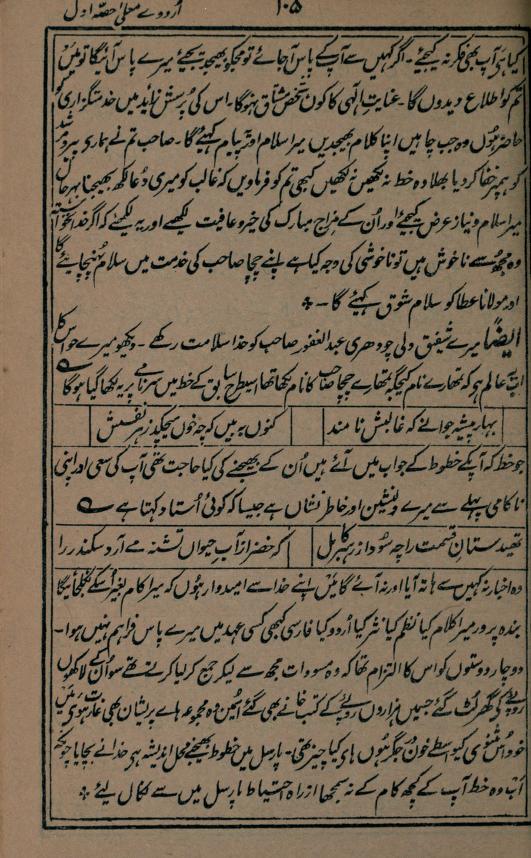 ۱۰۵
اردوے معلیٰ حصّہ اوّل
کیا ہی آپ بھی فکر نہ کیجئے۔ اگر کہیں سے آپ کے پاس آ جائے تو مجھکو بھیجدیجئے میرے پاس آئیگا تو میں
تمکو اطلاع دیدوں گا۔ عنایتِ الٰہی کا کون شخص مشتاق نہوگا۔ اس کی پُرسش زائد میں خدمتگزاری کو
حاضر ہوں وہ جب چاہیں اپنا کلام بھیجدیں میرا سلام اور پیام کہئے گا۔ صاحب تم نے ہماری پیر و مرشد
کو ہمپر خفا کر دیا بھلا وہ خط نہ لکھیں نہ لکھیں کبھی تم کو فرماویں کہ غالب کو میری دعا لکھ بھیجنا بہرحال
میرا سلام و نیاز عرض کیجئے اور اُن کے مزاج مبارک کی خیر و عافیت لکھئے اور یہ لکھئے کہ اگر خدانخواستہ
وہ مجھ سے ناخوش ہیں تو ناخوشی کی وجہ کیا ہے اپنے چچا صاحب کی خدمت میں سلام پہنچائیے گا
اور مولانا عطا کو سلام شوق کہئے گا۔
ایضاً میرے شفیق دلی چودھری عبدالغفور صاحب کو خدا سلامت رکھے۔ دیکھو میرے حواس کا
اب یہ عالم ہو کہ تمھارے نام کی جگہ تمھارے چچا صاحب کا نام لکھا تھا اسیطرح سابق کے خط میں سرنامے پر یہ لکھا گیا ہوگا
بہار پیشہ جوانے کہ غالبش نامند کنوں ببیں کہ چہ خوں میچکد ز ہر نفسش
جو خط کہ آپکے خطوط کے جواب میں آئے ہیں اُن کے بھیجنے کی کیا حاجت تھی آپ کی سعی اور اپنی
ناکامی پہلے سے میرے دلنشین اور خاطر نشاں ہے جیسا کہ کوئی اُستاد کہتا ہے
تہیدستانِ قسمت را چہ سود از رہبر کامل کہ خضر از آبِ حیواں تشنہ مے آرد سکندر را
وہ اخبار نہ کہیں سے ہاتھ آیا اور نہ آئے گا میں اپنے خدا سے امیدوار ہوں کہ میرا کام بغیر اُسکے نکلجائیگا
بندہ پرور میرا کلام کیا نظم کیا نثر کیا اُردو کیا فارسی کبھی کسی عہد میں میرے پاس فراہم نہیں ہوا۔
دو چار دوستوں کو اس کا التزام تھا کہ وہ مسودات مجھ سے لیکر جمع کر لیا کرتے تھے سو اُن کے لاکھوں
روپے کے گھر لٹ گئے جسمیں ہزاروں روپئے کے کتب خانے بھی گئے اُسمیں وہ مجموعہ ہاے پریشان بھی غارت ہوئے میں
خود اُس مثنوی کیواسطے خوں در جگر ہوں ہاے کیا چیز تھی۔ پارسل میں خطوط بھیجنے محل اندیشہ ہے خدا نے بچا یا چونکہ
اب وہ خط آپ کے کچھ کام کے نہ سمجھا از راہ احتیاط پارسل میں سے نکال لیئے